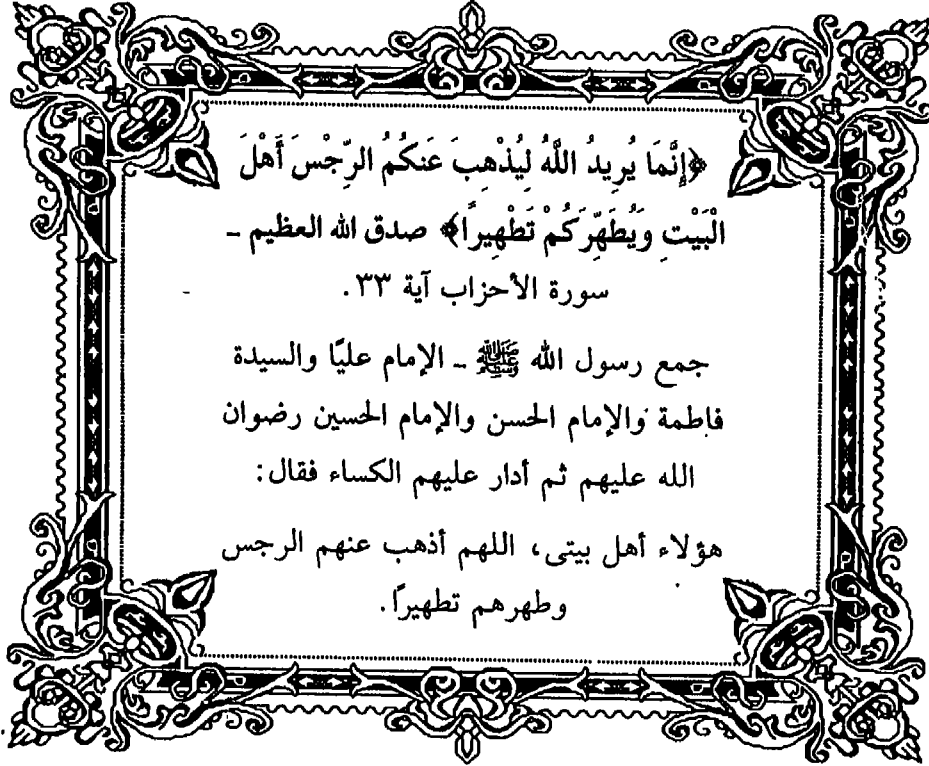 ﴿إِنَّمَا يُرِيدُ اللَّهُ لِيُذْهِبَ عَنكُمُ الرِّجْسَ أَهْلَ
الْبَيْتِ وَيُطَهِّرَكُمْ تَطْهِيرًا﴾ صدق الله العظيم ـ
سورة الأحزاب آية ٣٣.
جمع رسول الله ﷺ ـ الإمام عليًا والسيدة
فاطمة والإمام الحسن والإمام الحسين رضوان
الله عليهم ثم أدار عليهم الكساء فقال:
هؤلاء أهل بيتى، اللهم أذهب عنهم الرجس
وطهرهم تطهيراً.